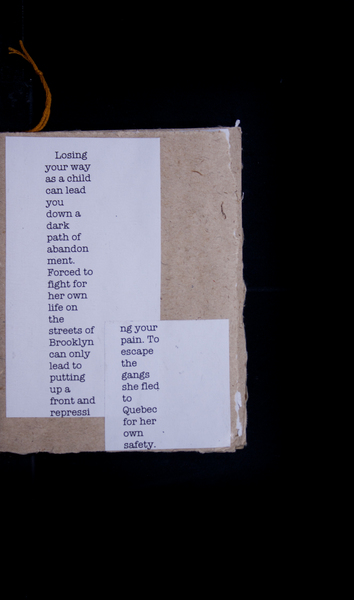 Losing
your way
as a child
can lead
you
down a
dark
path of
abandon
ment.
Forced to
fight for
her own
life on
the
streets of
Brooklyn
can only
lead to
putting
up a
front and
repressi
ng your
pain. To
escape
the
gangs
she fled
to
Quebec
for her
own
safety.